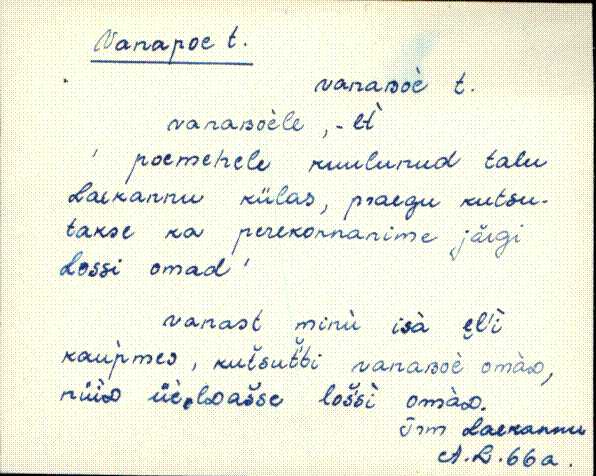 Vanapoe t.
vanaʙoè t.
vanaʙoèle, -lt̀
' poemehele kuulunud talu
Laekannu külas, praegu kutsu-
takse ka perekonnanime järgi
Lossi omad '
vanast minù isà ęl'ì
kaup̀meᴢ, kutšut̆bi vanaʙoè omàᴅ,
nǖìᴅ üèlᴅašse loššì omàᴅ.
Trm Laekannu
A.L. 66a.